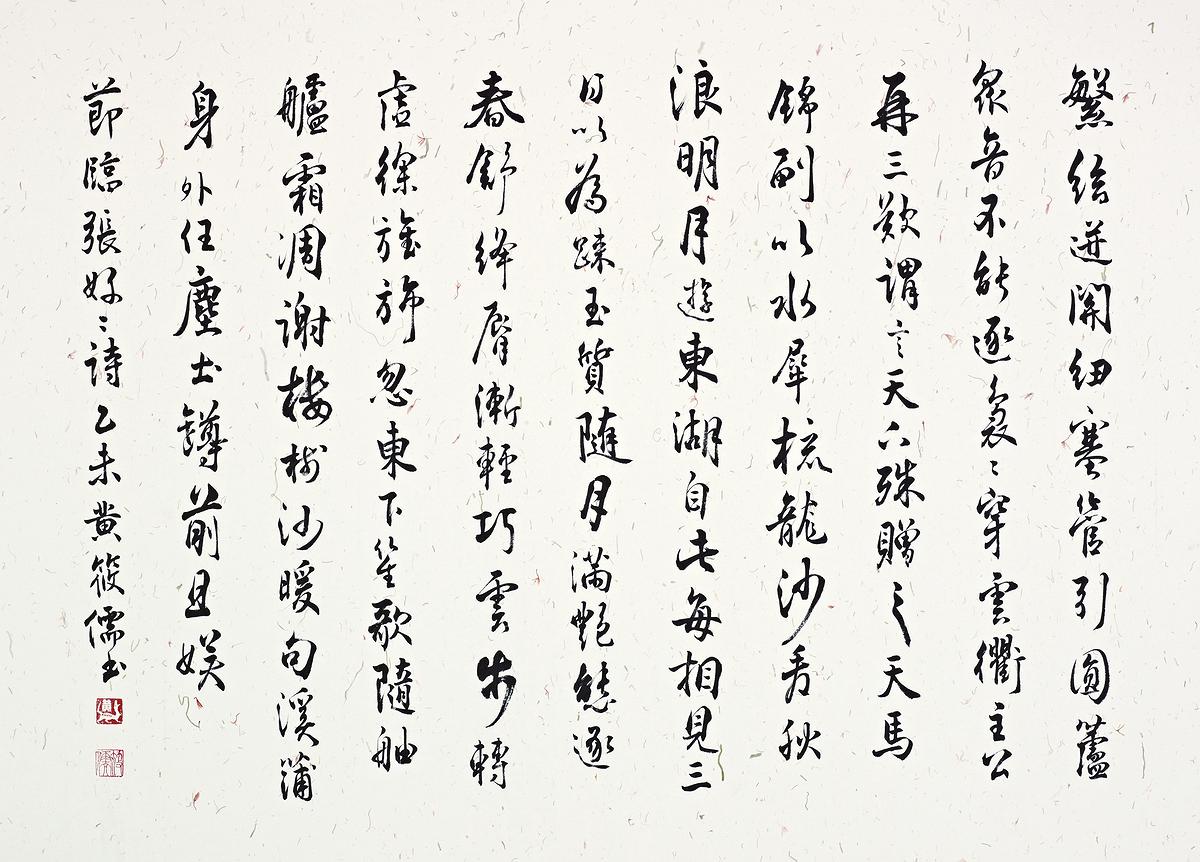 繁絃迸關紐塞管引圓蘆
衆音不能逐裊〻穿雲衢主公
再三歎謂言天下殊贈之天馬
錦副以水犀梳龍沙看秋
浪明月遊東湖自此每相見三
日以為踈玉質随月滿艷態逐
春舒絳脣漸輕巧雲步轉
虛徐旌旆忽東下笙歌隨舳
艫霜凋謝樓樹沙暖句溪蒲
身外任塵土罇前且娛
節臨張好〻詩乙未黃筱儒書